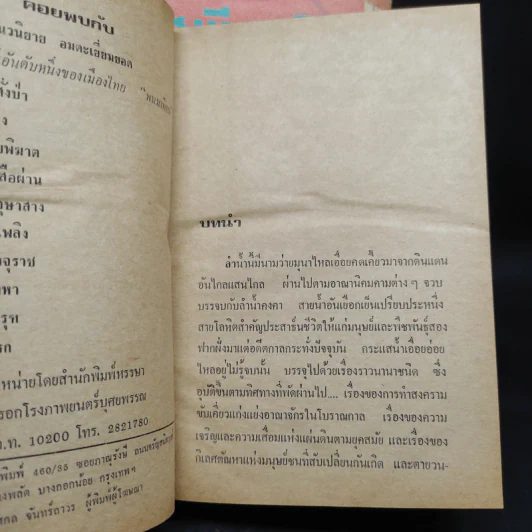 คอยพบกับ
นวนิยาย อมตะเยี่ยมยอด
อันดับหนึ่งของเมืองไทย
พิฆาต
เสือผ่าน
อุษาสาง
เพลิง
หน่ายโดยสำนักพิมพ์บรรษา
ตรอกโรงภาพยนตร์บุศยพรรณ
ก.ท. 10200 โทร. 2821780
พิมพ์ 460/35 ซอยภาณุรังษี
บางพลัด บางกอกน้อย กรุงเทพฯ
จันทร์ถาวร ผู้พิมพ์ผู้โฆษณา
บทนำ
ลำน้ำนี้มีนามว่ายมุนาไหลเอื่อยคดเคี้ยวมาจากดินแดน
อันไกลแสนไกล ผ่านไปตามอาณานิคมคามต่าง ๆ จวบ
บรรจบกับลำน้ำคงคา สายน้ำอันเยือกเย็นเปรียบประหนึ่ง
สายโลหิตสำคัญประสาธน์ชีวิตให้แก่มนุษย์และพืชพันธุ์สอง
ฟากฝั่งมาแต่อดีตกาลกระทั่งปัจจุบัน กระแสน้ำเอื่อยอ่อย
ไหลอยู่ไม่รู้จบนั้น บรรจุไปด้วยเรื่องราวนานาชนิด ซึ่ง
อุบัติขึ้นตามทิศทางที่พัดผ่านไป.... เรื่องของการทำสงคราม
ขับเคี่ยวแก่งแย่งอาณาจักรในโบราณกาล เรื่องของความ
เจริญและความเสื่อมแห่งแผ่นดินตามยุคสมัย และเรื่องของ
กิเลศตัณหาแห่งมนุษย์ชนที่สับเปลี่ยนกันเกิด และตายวน-